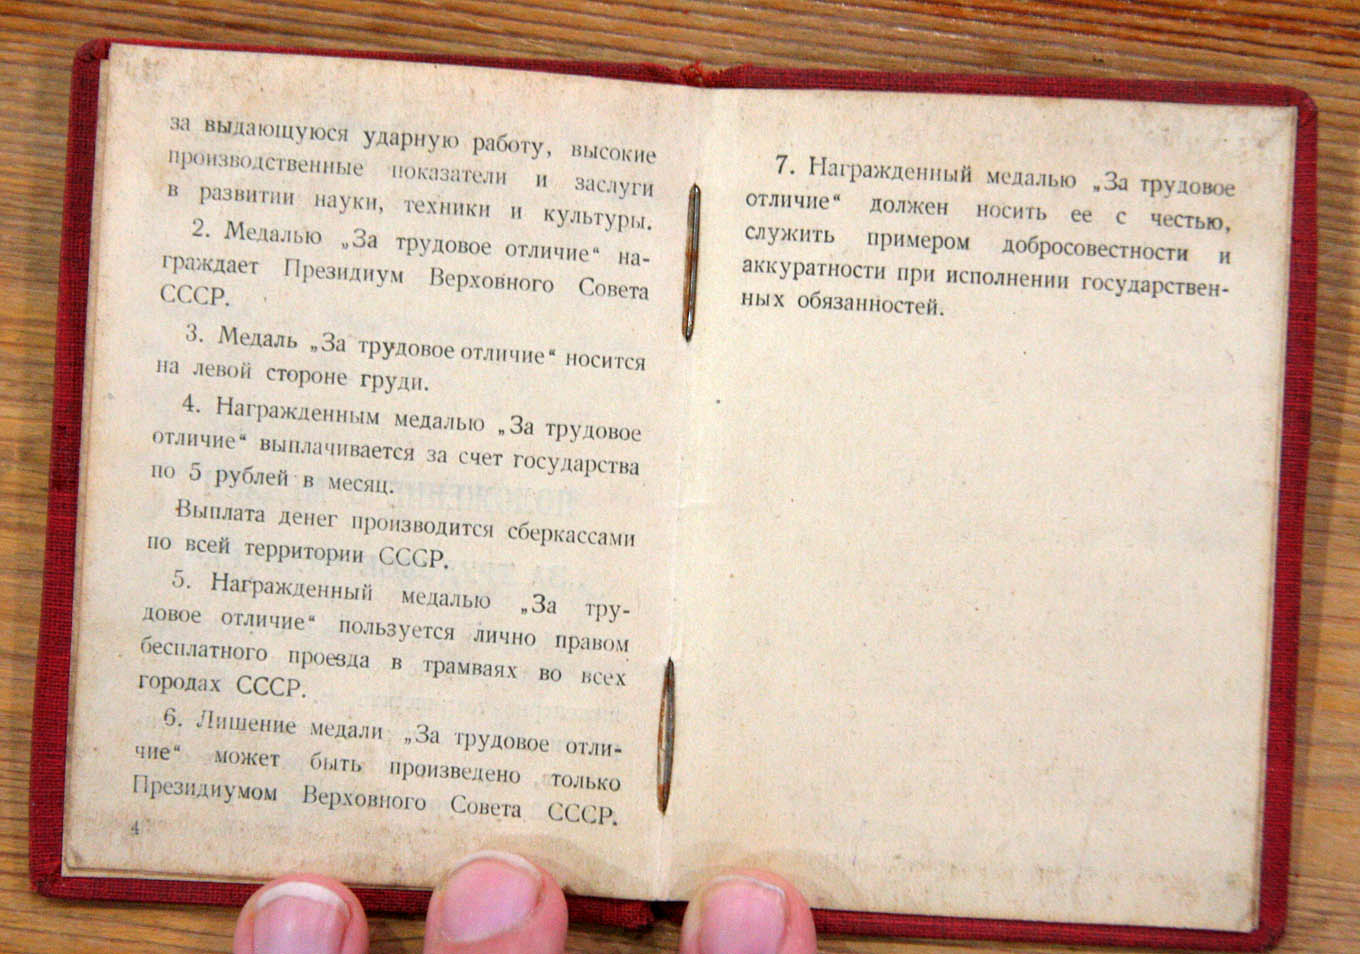 за выдающуюся ударную работу, высокие
производственные показатели и заслуги
в развитии науки, техники и культуры.
2. Медалью „За трудовое отличие“ на-
граждает Президиум Верховного Совета
СССР.
3. Медаль „За трудовое отличие“ носится
на левой стороне груди.
4. Награжденным медалью „За трудовое
отличие“ выплачивается за счет государства
по 5 рублей в месяц.
Выплата денег производится сберкассами
по всей территории СССР.
5. Награжденный медалью „За тру-
довое отличие“ пользуется лично правом
бесплатного проезда в трамваях во всех
городах СССР.
6. Лишение медали „За трудовое отли-
чие“ может быть произведено только
Президиумом Верховного Совета СССР.
4
7. Награжденный медалью „За трудовое
отличие“ должен носить ее с честью,
служить примером добросовестности и
аккуратности при исполнении государствен-
ных обязанностей.